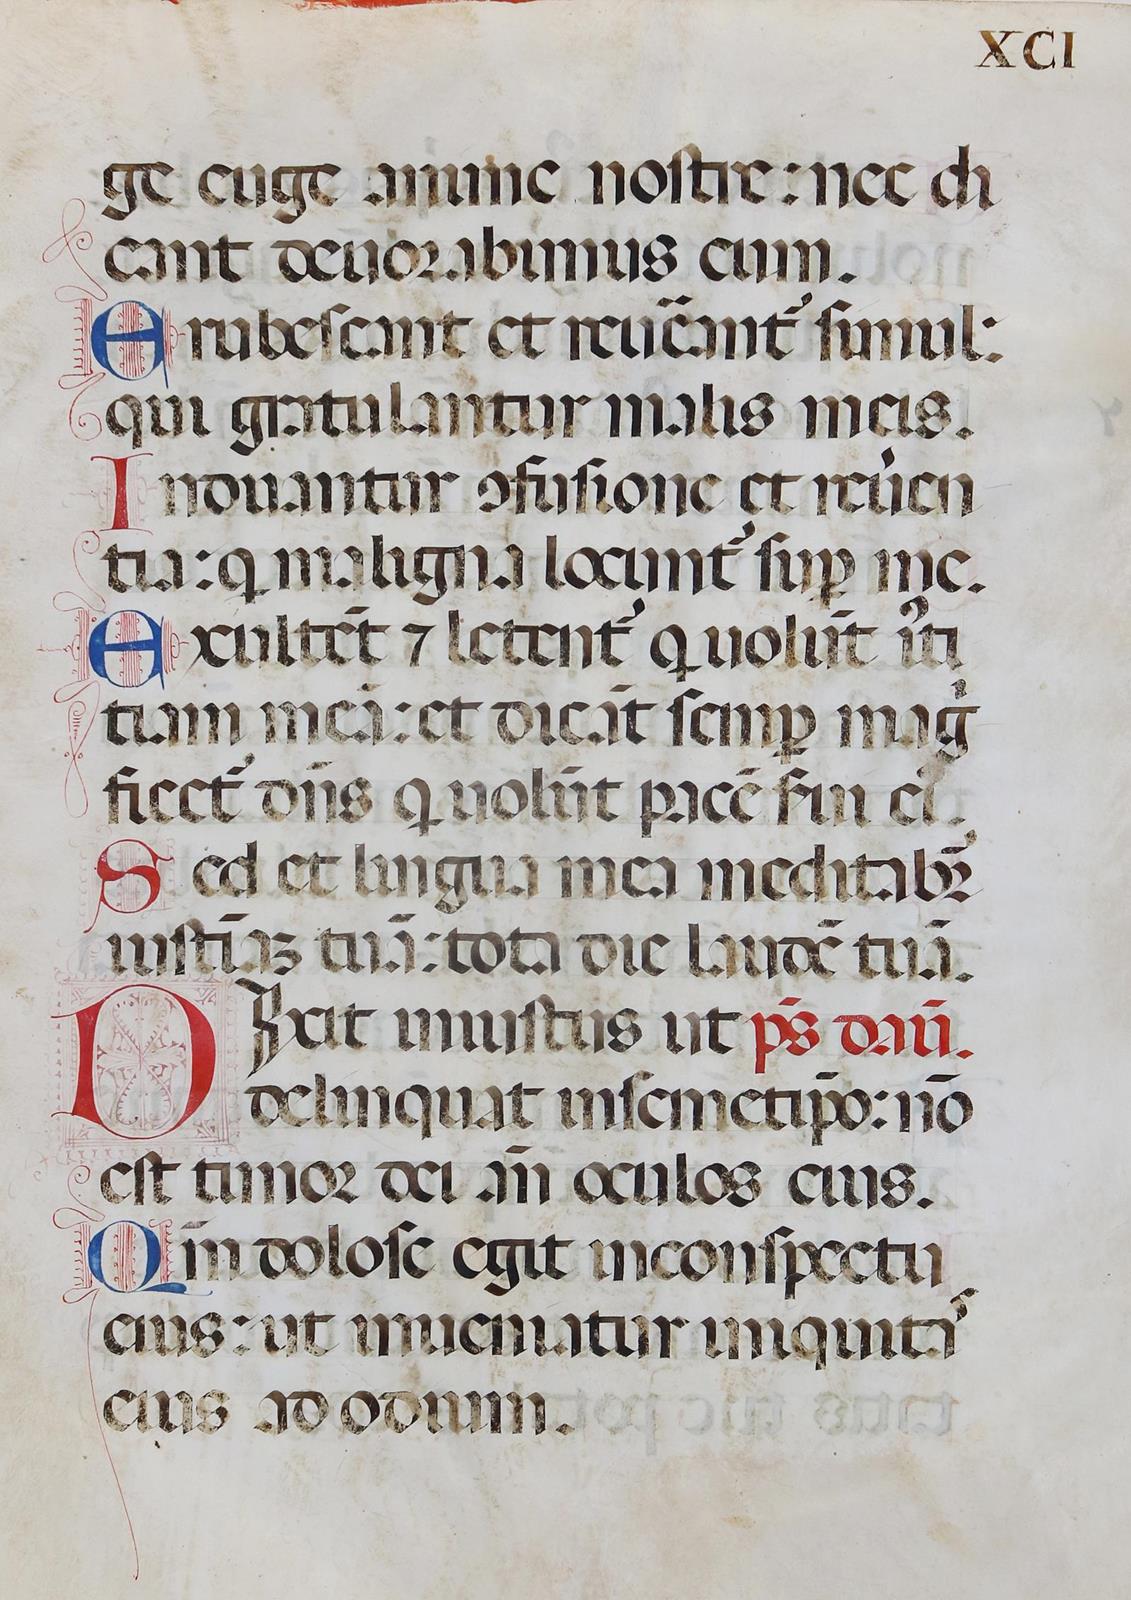 XCI
ge euge anime nostre: nec di
cant deuorabimus eum.
Erubescant et reuēant᷑ simul:
qui gratulantur malis meis.
Induantur ꝯfusione et reu͛en
tia: q maligna locunt᷑ suꝑ me.
Exultēt ⁊ letent᷑ q uolūt iu͛ti
tiam meā: et dicāt semꝑ mag͛
ficet᷑ dn̄s q uolūt pacē ẜui ei᷒.
Sed et lingua mea meditabr̄
iustiāꝫ tuā: tota die laudē tuā.
Dixit iniustus ut ps̄ dauī.
delinquat insemetip̄o: nō
est timor dei an̄ oculos eius.
Qm̄ dolose egit inconspectu
eius: ut inueniatur iniquita᷒
eius ad odium.